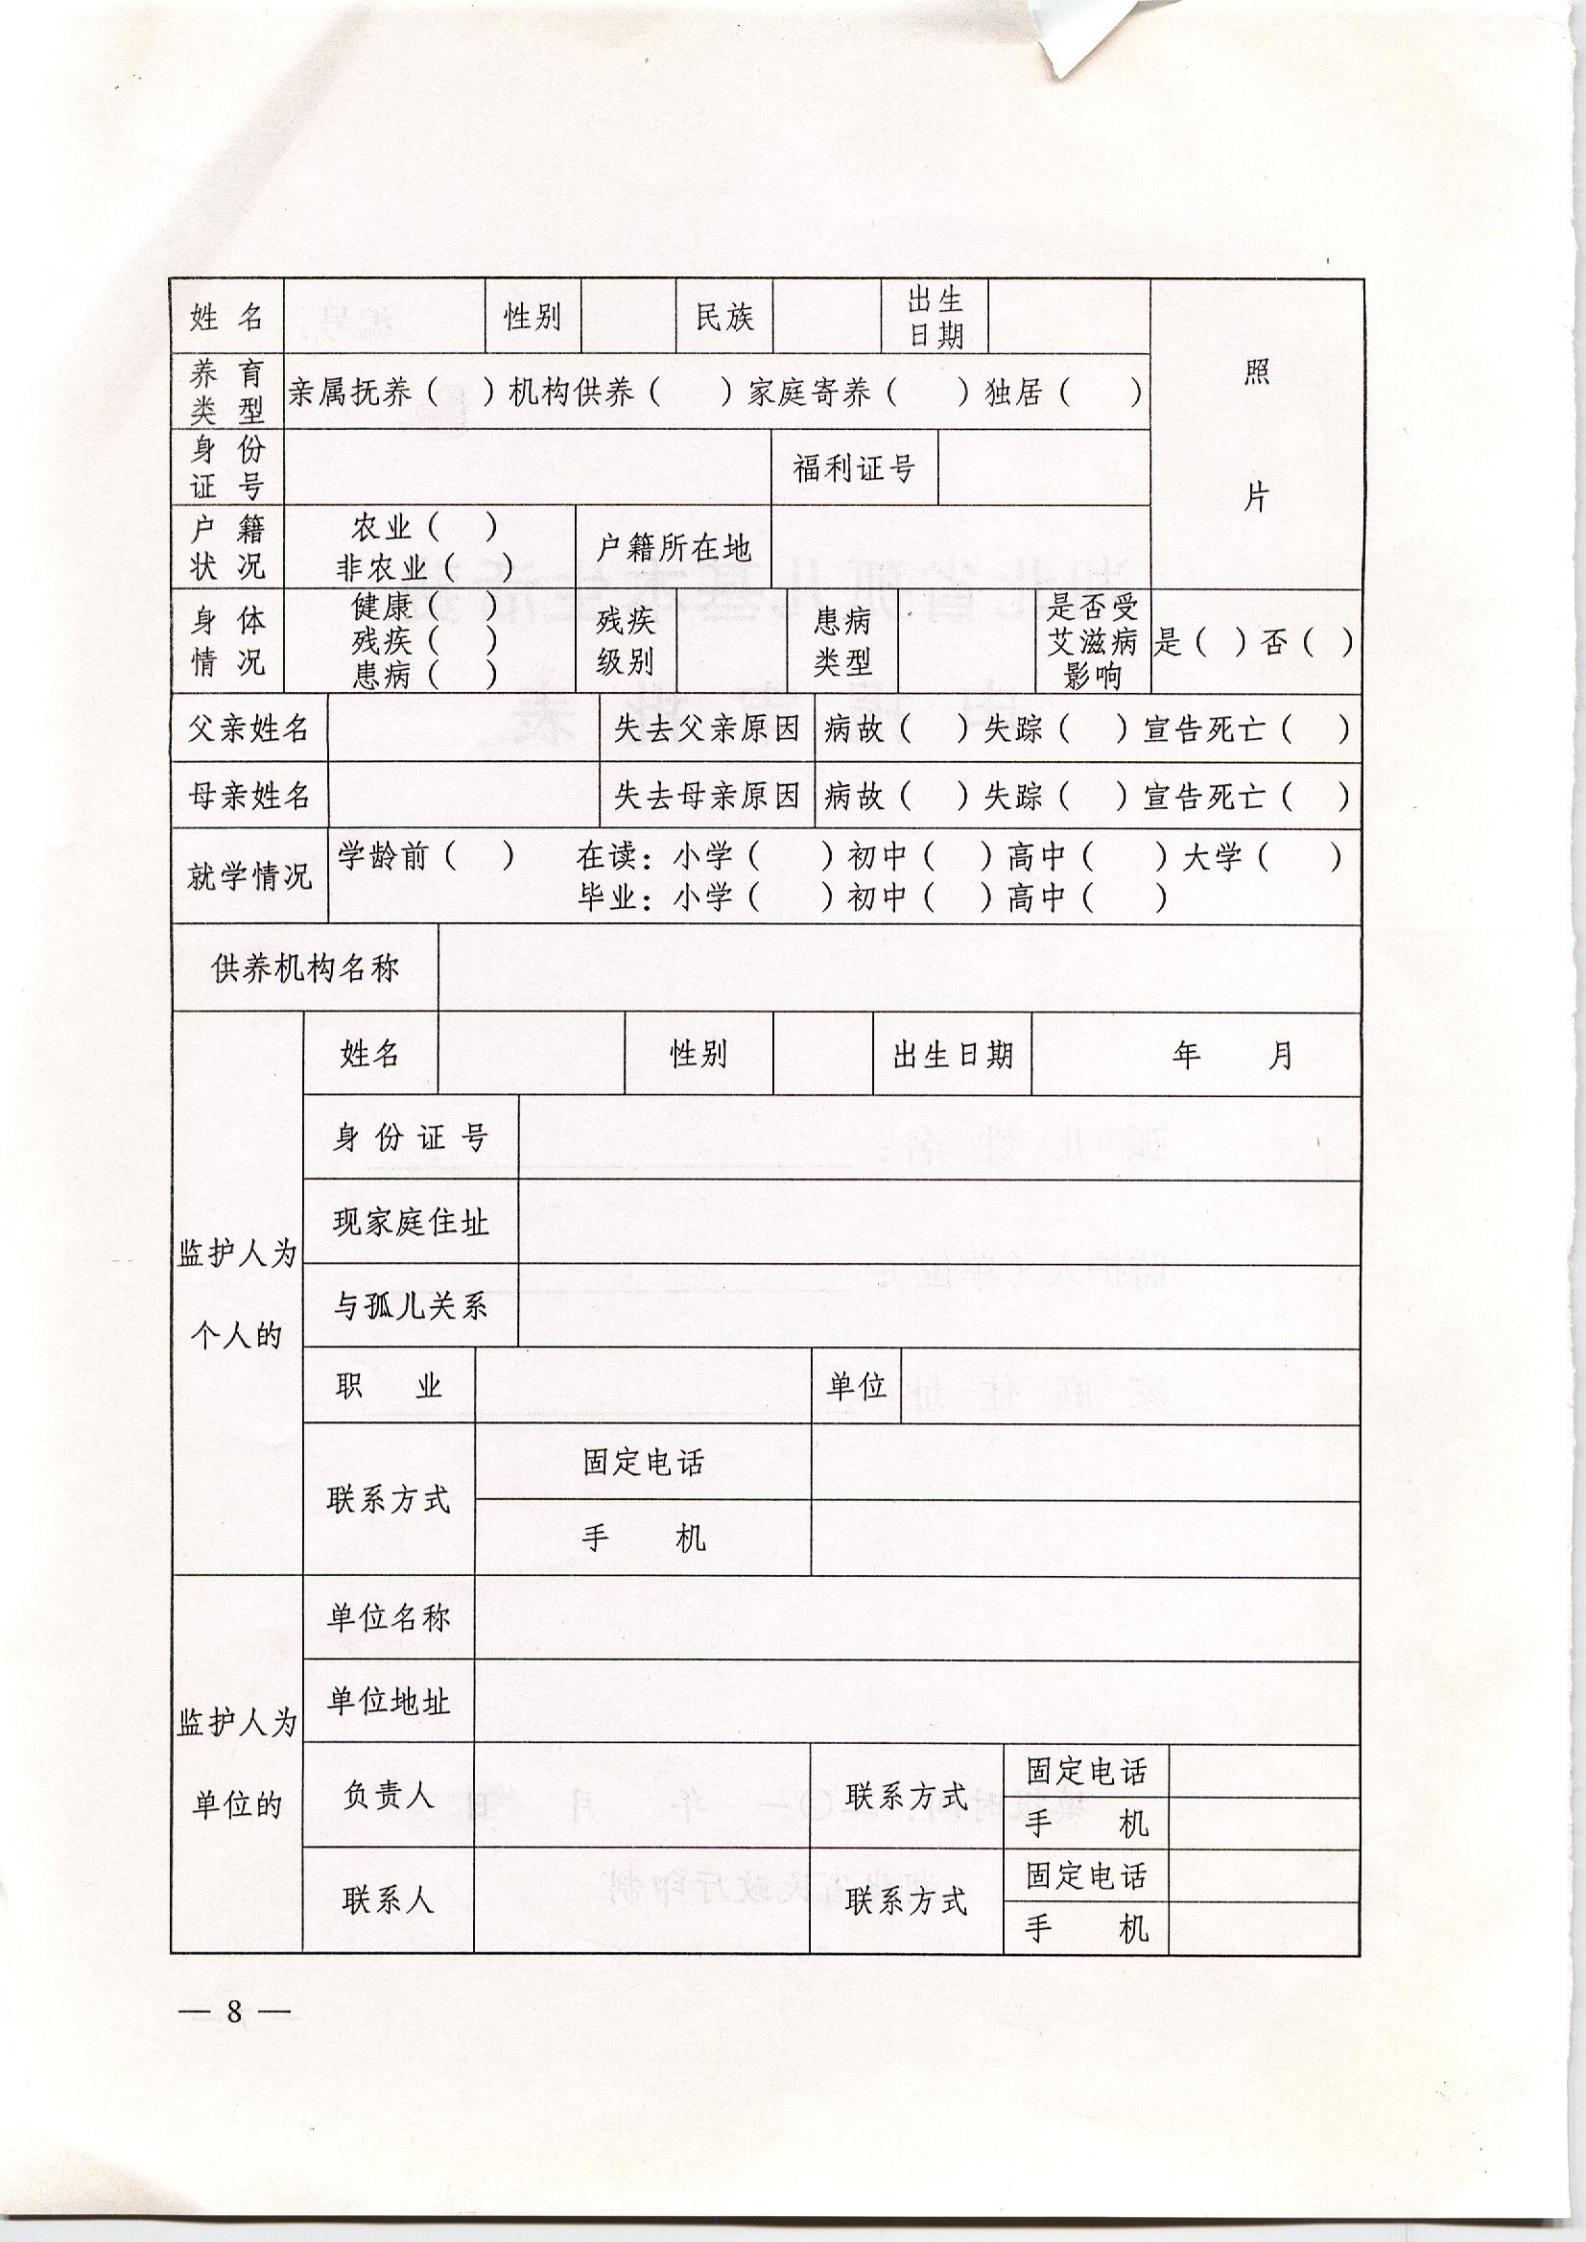 姓 名 性别 民族 出生日期 照片
养育类型 亲属抚养（ ）机构供养（ ）家庭寄养（ ）独居（ ）
身份证号 福利证号
户籍状况 农业（ ） 非农业（ ） 户籍所在地
身体情况 健康（ ） 残疾（ ） 患病（ ） 残疾级别 患病类型 是否受艾滋病影响 是（ ）否（ ）
父亲姓名 失去父亲原因 病故（ ）失踪（ ）宣告死亡（ ）
母亲姓名 失去母亲原因 病故（ ）失踪（ ）宣告死亡（ ）
就学情况 学龄前（ ） 在读：小学（ ）初中（ ）高中（ ）大学（ ）
毕业：小学（ ）初中（ ）高中（ ）
供养机构名称
监护人为个人的
姓名 性别 出生日期 年 月
身份证号
现家庭住址
与孤儿关系
职 业 单位
联系方式 固定电话
手 机
监护人为单位的
单位名称
单位地址
负责人 联系方式 固定电话
手 机
联系人 联系方式 固定电话
手 机
— 8 —